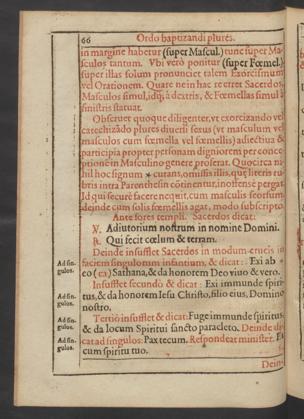 66 Ordo baptizandi plures.
in margine habetur (super Mascul.) tunc super Ma-
sculos tantum. Vbi verò ponitur (super Fœmel.)
super illas solum pronunciet talem Exorcismum
vel Orationem. Quare ne in hac re erret Sacerdos,
Masculos simul, idq; à dextris, & Fœmellas simul à
sinistris statuat.
Obseruet quoque diligenter, vt exorcizando vel
catechizãdo plures diuersi sexus (vt masculum, vel
masculos cum fœmella vel fœmellis) adiectiua &
participia propter personam digniorem per conce-
ptionẽ in Masculino genere proferat. Quocirca ni-
hil hoc signum * curans, omissis illis, quæ literis ru-
bris intra Parenthesin cõtinentur, inoffensè pergat.
Id qui securè facere nequit, cum masculis seorsum,
deinde cum solis fœmellis agat, modo subscripto.
Ante fores templi. Sacerdos dicat:
℣. Adiutorium nostrum in nomine Domini.
℟. Qui fecit cœlum & terram.
Deinde insufflet Sacerdos in modum crucis in
faciem singulorum infantium, & dicat: Exi ab
Ad sin-
gulos.
eo (ea) Sathana, & da honorem Deo viuo & vero.
Insufflet secundò & dicat: Exi immunde spiri-
Ad sin-
gulos.
tus, & da honorem Iesu Christo, filio eius, Domino
nostro.
Tertiò insufflet & dicat: Fuge immunde spiritus,
Ad sin-
gulos.
& da locum Spiritui sancto paracleto. Deinde di-
Ad sin-
gulos.
cat ad singulos: Pax tecum. Respondeat minister. Et
cum spiritu tuo.
Dein-